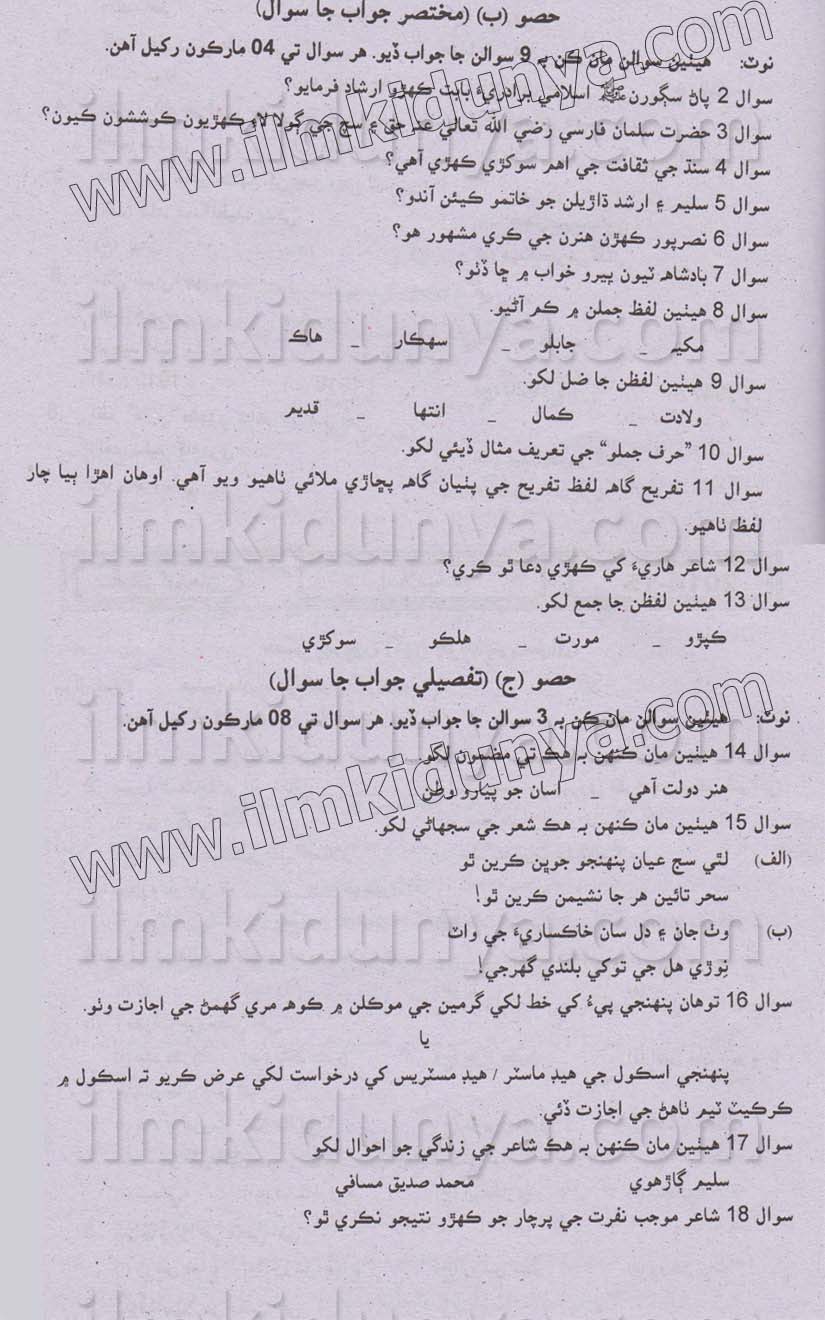 حصو (ب) (مختصر جواب جا سوال)
نوٽ: هيٺين سوالن مان ڪن به 9 سوالن جا جواب ڏيو. هر سوال تي 04 مارڪون رکيل آهن.
سوال 2 پاڻ سڳورن ﷺ اسلامي برادريءَ بابت ڪهڙو ارشاد فرمايو؟
سوال 3 حضرت سلمان فارسي رضي الله تعالي عنہ حق ۽ سچ جي ڳولا لاءِ ڪهڙيون ڪوششون ڪيون؟
سوال 4 سنڌ جي ثقافت جي اهم سوکڙي ڪهڙي آهي؟
سوال 5 سليم ۽ ارشد ڌاڙيلن جو خاتمو ڪيئن آندو؟
سوال 6 نصرپور ڪهڙن هنرن جي ڪري مشهور هو؟
سوال 7 بادشاهہ ٽيون ڀيرو خواب ۾ ڇا ڏٺو؟
سوال 8 هيٺين لفظ جملن ۾ ڪم آڻيو.
مکيه _ جابلو _ سهڪار _ هاڪ
سوال 9 هيٺين لفظن جا ضل لکو.
ولادت _ ڪمال _ انتها _ قديم
سوال 10 ”حرف جملو“ جي تعريف مثال ڏيئي لکو.
سوال 11 تفريح گاهہ لفظ تفريح جي پٺيان گاهہ پڇاڙي ملائي ٺاهيو ويو آهي. اوهان اهڙا ٻيا چار
لفظ ٺاهيو.
سوال 12 شاعر هاريءَ کي ڪهڙي دعا ٿو ڪري؟
سوال 13 هيٺين لفظن جا جمع لکو.
ڪپڙو _ مورت _ هلڪو _ سوکڙي
حصو (ج) (تفصيلي جواب جا سوال)
نوٽ: هيٺين سوالن مان ڪن به 3 سوالن جا جواب ڏيو. هر سوال تي 08 مارڪون رکيل آهن.
سوال 14 هيٺين مان ڪنهن به هڪ تي مضمون لکو
هنر دولت آهي _ اسان جو پيارو وطن
سوال 15 هيٺين مان ڪنهن به هڪ شعر جي سمجهاڻي لکو.
(الف) لٿي سج عيان پنهنجو جوڀن ڪرين ٿو
سحر تائين هر جا نشيمن ڪرين ٿو!
(ب) وٺ جان ۽ دل سان خاڪساريءَ جي واٽ
نِوڙي هل جي توکي بلندي گهرجي!
سوال 16 توهان پنهنجي پيءُ کي خط لکي گرمين جي موڪلن ۾ ڪوهہ مري گهمڻ جي اجازت وٺو.
يا
پنهنجي اسڪول جي هيڊ ماستر / هيڊ مسٽريس کي درخواست لکي عرض ڪريو تہ اسڪول ۾
ڪرڪيٽ ٽيم ٺاهڻ جي اجازت ڏئي.
سوال 17 هيٺين مان ڪنهن به هڪ شاعر جي زندگي جو احوال لکو
سليم ڳاڙهوي محمد صديق مسافي
سوال 18 شاعر موجب نفرت جي پرچار جو ڪهڙو نتيجو نڪري ٿو؟
www.ilmkidunya.com
www.ilmkidunya.com
ilmkidunya.com
ilmkidunya.com
ilmkidunya.com
ilmkidunya.com
ilmkidunya.com
ilmkidunya.com
ilmkidunya.com